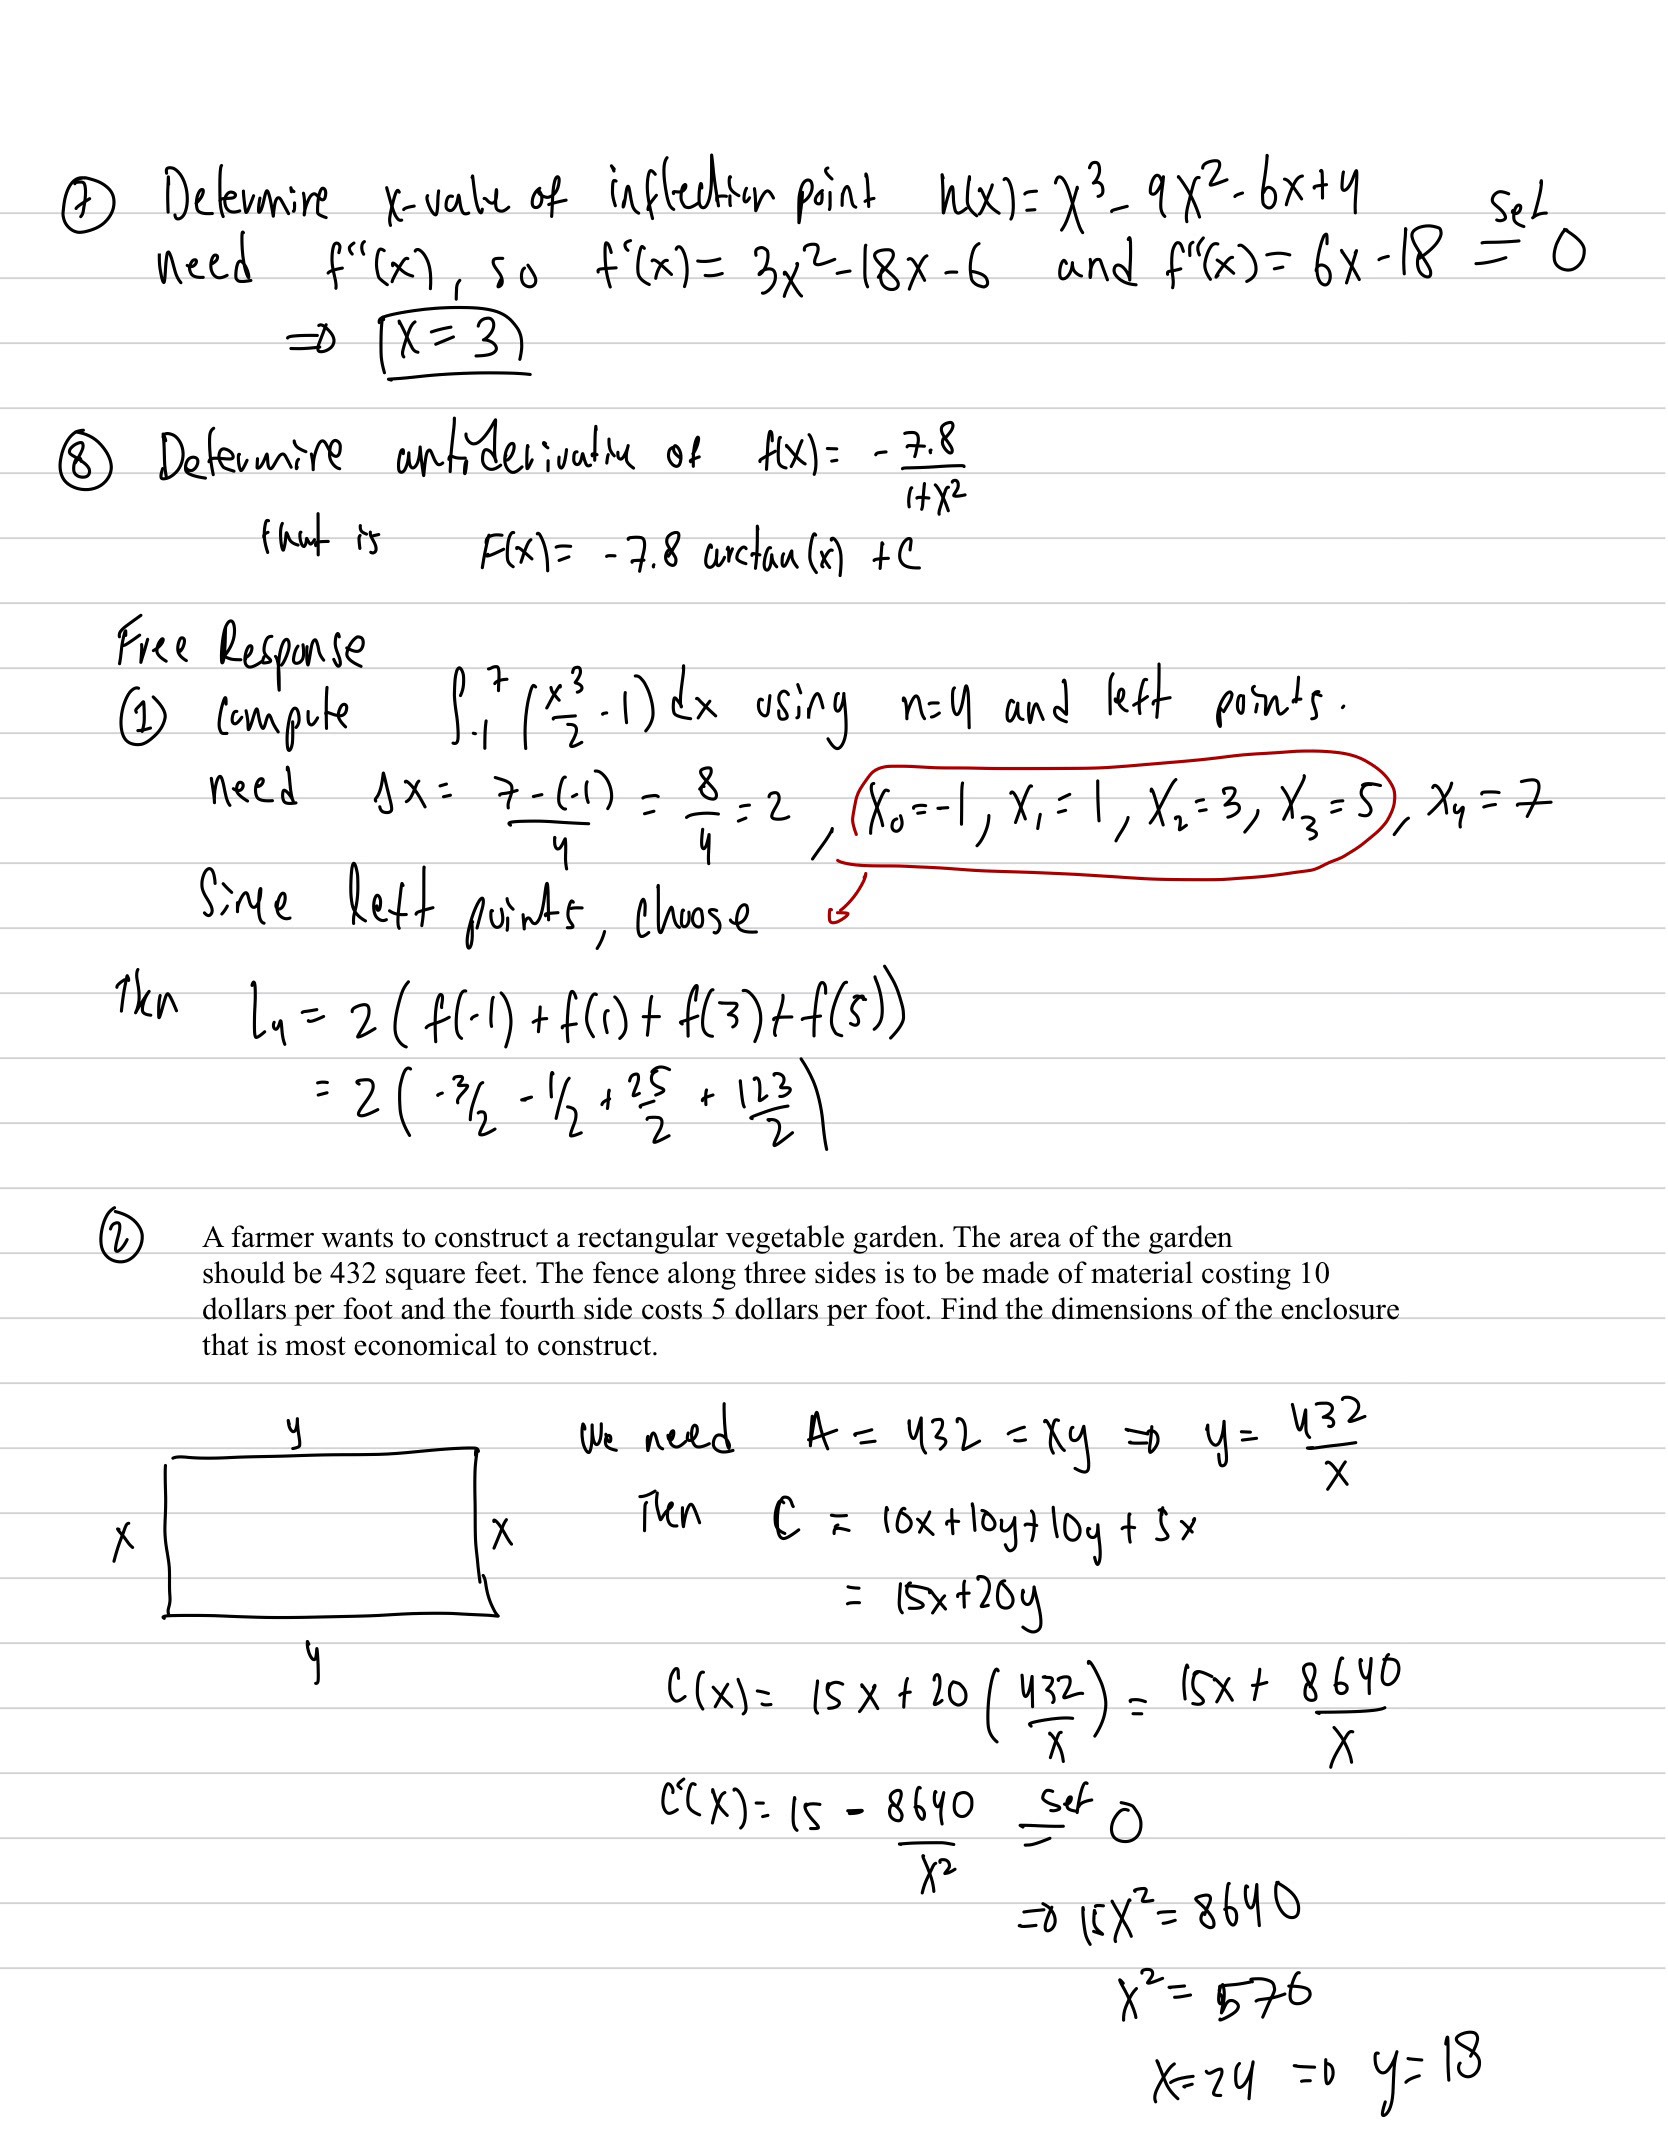 ⑦ Determine x-value of inflection point h(x) = x³ - 9x² - 6x + 4
need f''(x), so f'(x) = 3x² - 18x - 6 and f''(x) = 6x - 18 set = 0
⇒ x = 3
⑧ Determine antiderivative of f(x) = - 7.8/(1+x²)
that is F(x) = -7.8 arctan(x) + C
Free Response
① Compute ∫₋₁⁷ (x³/2 - 1) dx using n=4 and left points.
need Δx = (7-(-1))/4 = 8/4 = 2, x₀ = -1, x₁ = 1, x₂ = 3, x₃ = 5, x₄ = 7
Since left points, choose
Then L₄ = 2(f(-1) + f(1) + f(3) + f(5))
= 2(-3/2 - 1/2 + 25/2 + 123/2)
② A farmer wants to construct a rectangular vegetable garden. The area of the garden
should be 432 square feet. The fence along three sides is to be made of material costing 10
dollars per foot and the fourth side costs 5 dollars per foot. Find the dimensions of the enclosure
that is most economical to construct.
y
x
x
y
We need A = 432 = xy ⇒ y = 432/x
Then C = 10x+10y+10y+5x
= 15x+20y
C(x) = 15x + 20(432/x) = 15x + 8640/x
C'(x) = 15 - 8640/x² set = 0
⇒ 15x² = 8640
x² = 576
x = 24 ⇒ y = 18